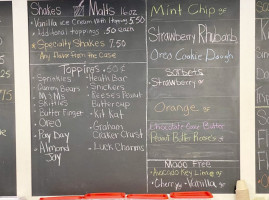 Shakes Malts 16 oz
Vanilla Ice Cream With Topping 5.50
Additional toppings .50 each
Specialty Shakes 7.50
Any Flavor From the Case
Toppings .50¢
Sprinkles
Gummy Bears
M&Ms
Skittles
Butter Finger
Oreo
Pay Day
Almond Joy
Heath Bar
Snickers
Reese's Peanut Butter Cup
Kit Kat
Graham Cracker Crust
Luck Charms
Mint Chip GF
Strawberry Rhubarb
Oreo Cookie Dough
Sorbets
Strawberry GF
Orange GF
Chocolate Peanut Butter
Peanut Butter Reeses
Dairy Free
Avocado Key Lime GF
Cherry Vanilla GF